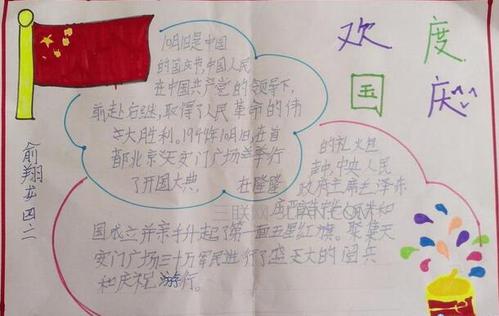 欢度
国庆
10月1日是中国
的国庆节,中国人民
在中国共产党的领导下,
前赴后继,取得了人民革命的伟
大胜利。1949年10月1日,在首
都北京天安门广场举行
了开国大典. 在隆隆
的礼火包
声中,中央人民
政府主席毛泽东
和
国成立并亲手升起了第一面五星红旗。聚集天
安门广场三十万军民进行了盛大的阅兵
和庆祝游行。
俞翔 四二
三联网